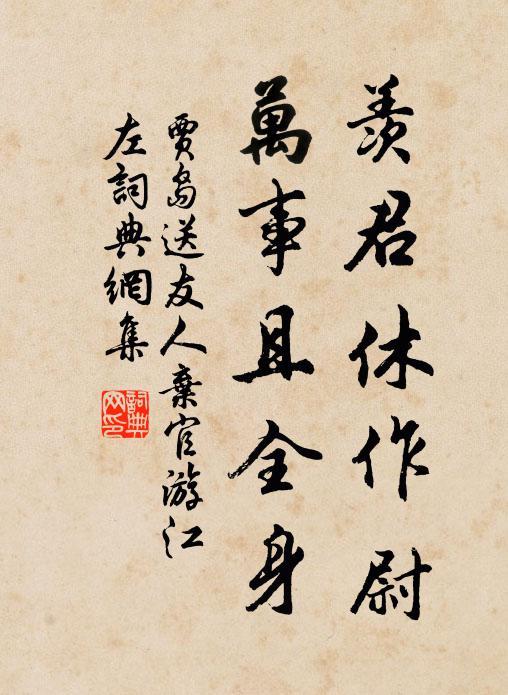 羨君休作尉
萬事且全身
賈島送友人棄官游江
左詞典網集
詞典
网印